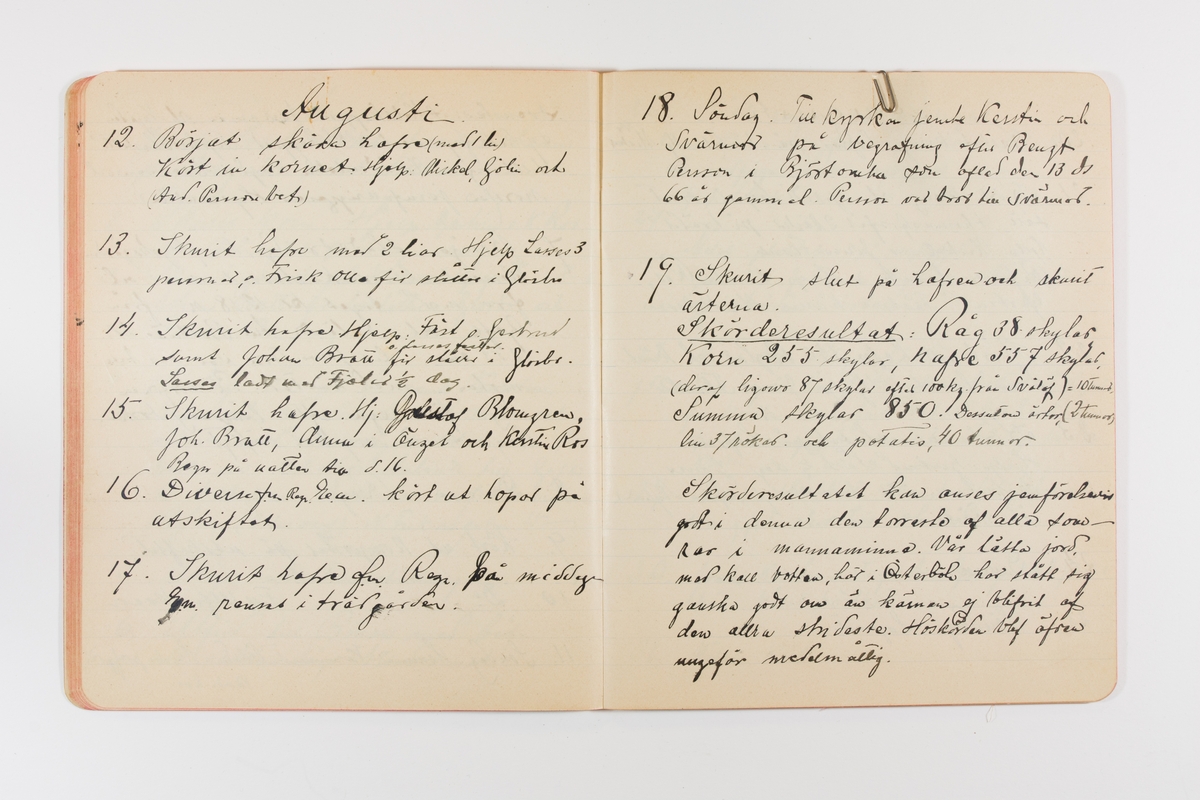 Augusti
12. Börjat skära hafre (med 1 lie)
Kört in kornet Hjelp: Mickel, Gölin och
(And. Persson bet.)
13. Skurit hafre med 2 liar. Hjelp Lasses 3
personer, o. Frisk Olle för slåtter i
14. Skurit hafre Hjelp: Fäst o. Gertrud
samt Johan Bratt för slåtter i
Lasses ladt med Fjelis ½ dag.
15. Skurit hafre. Hj: Gustaf Blomgren,
Joh. Bratt, denna i änget och Kerstin Ros
Regn på natten till d. 16.
16. Diverse fm Regn. Kört ut hopar på
utskiftet.
17. Skurit hafre fm. Regn från middag
Em. rensat i trädgården.
18. Söndag. Till kyrkan jemte Kerstin och
Svärmor på begrafning efter Bengt
Persson i Björtomta som afled den 13 ds
66 år gammal. Persson var bror till Svärmor.
19. Skurit slut på hafren och skurit
ärterna.
Skörderesultat: Råg 38 skylar,
Korn 255 skylar, hafre 557 skylar,
(deraf ligowo 87 skylar efter 100 kg från Svalöf) = 10 tunnor.
Summa skylar 850. Dessutom ärter, (2 tunnor)
lin 37 rökar. och potatis, 40 tunnor.
Skörderesultatet kan anses jemförelsevis
godt i denna den torraste af alla som-
rar i mannaminne. Vår lätta jord,
med kall botten, här i Österböle har stått sig
ganska godt om än kärnan ej blifvit af
den allra stridaste. Höskörden blef äfven
ungefär medelmåttig.